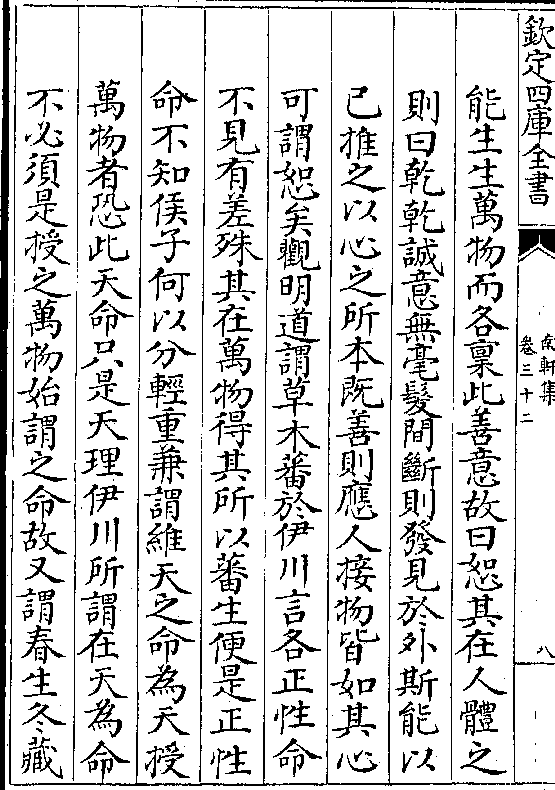 欽定四庫全書
南軒集
卷三十二
八
能生生萬物而各稟此善意故曰恕其在人體之
則曰乾乾誠意無毫髮間斷則發見於外斯能以
已推之以心之所本既善則應人接物皆如其心
可謂恕矣觀明道謂草木蕃於伊川言各正性命
不見有差殊其在萬物得其所以蕃生便是正性
命不知侯子何以分輕重兼謂維天之命為天授
萬物者恐此天命只是天理伊川所謂在天為命
不必須是授之萬物始謂之命故又謂春生冬藏